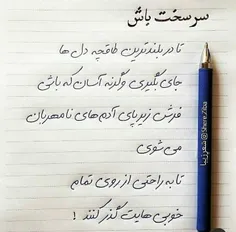 سرسخت باش
تا در بلندترین طاقچه دل ها
جای بگیری وگرنه آسان که باشی
فرش زیر پای آدم های نامهربان
می شوی
تا به راحتی از روی تمام
خوبی هایت گذر کنند !
@Shere.Ziba شعر زیبا